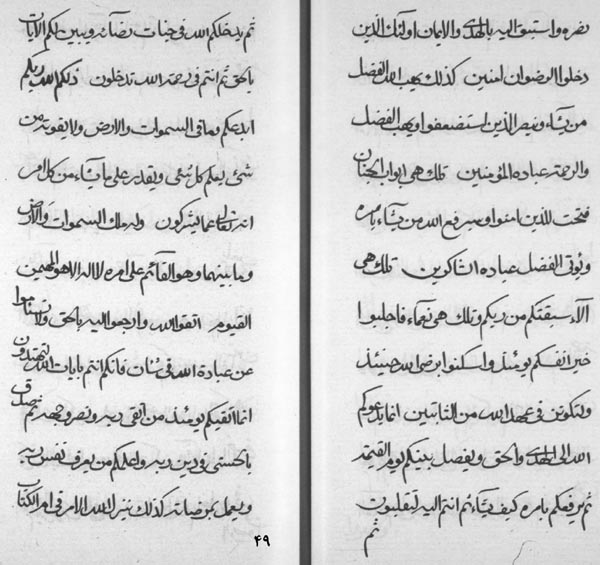 نصره واستبق اليه بالهدى والايمان اولئك الذين
دخلوا الرضوان امنين كذلك يهب الله الفضل
من يشاء وينصر الذين استضعفوا ويهب الفضل
والرحمة عباده المؤمنين تلك هى ابواب الجنان
فتحت للذين امنوا وسيرفع الله من يشاء بامره
ويؤتى الفضل عباده الشاكرين تلك هى
آلاء سبقتكم من ربكم وتلك هى نعماء فاجلبوا
خيرا انفسكم يومئذ واسكنوا برضا الله حينئذ
ولتكونن فى عهد الله من الثابتين انما يدعوكم
الله الى الهدى والحق ويفصل بينكم يوم القيمة
ثم يرفعكم بامره كيف يشاء ثم انتم اليه لتقلبون
ثم
ثم يدخلكم الله فى جنات رضائه ويبين لكم الآيات
بالحق ثم انتم فى رحمة الله تدخلون ذلكم الله ربكم
ابدعكم وما فى السموات والارض ولا يفوته من
شئ يعلم كل شئ ويقدر على ما يشاء من كل امر
انه تعالى عما يشركون وله ملك السموات والارض
وما بينهما وهو القائم على امره لا اله الا هو المهيمن
القيوم اتقوا الله وارجعوا اليه بالحق ولا تسئاموا
عن عبادة الله فى فانكم انتم بايات الله لتهتدون
انما اتقيكم يومئذ من اتقى ربه ونصر وجهه ثم يصدق
بالحسنى فى دين ربه واعلمكم من يعرف نفس ربه
ويعمل بمرضاته كذلك ينزل الله الامر فى ام الكتاب
۴۹